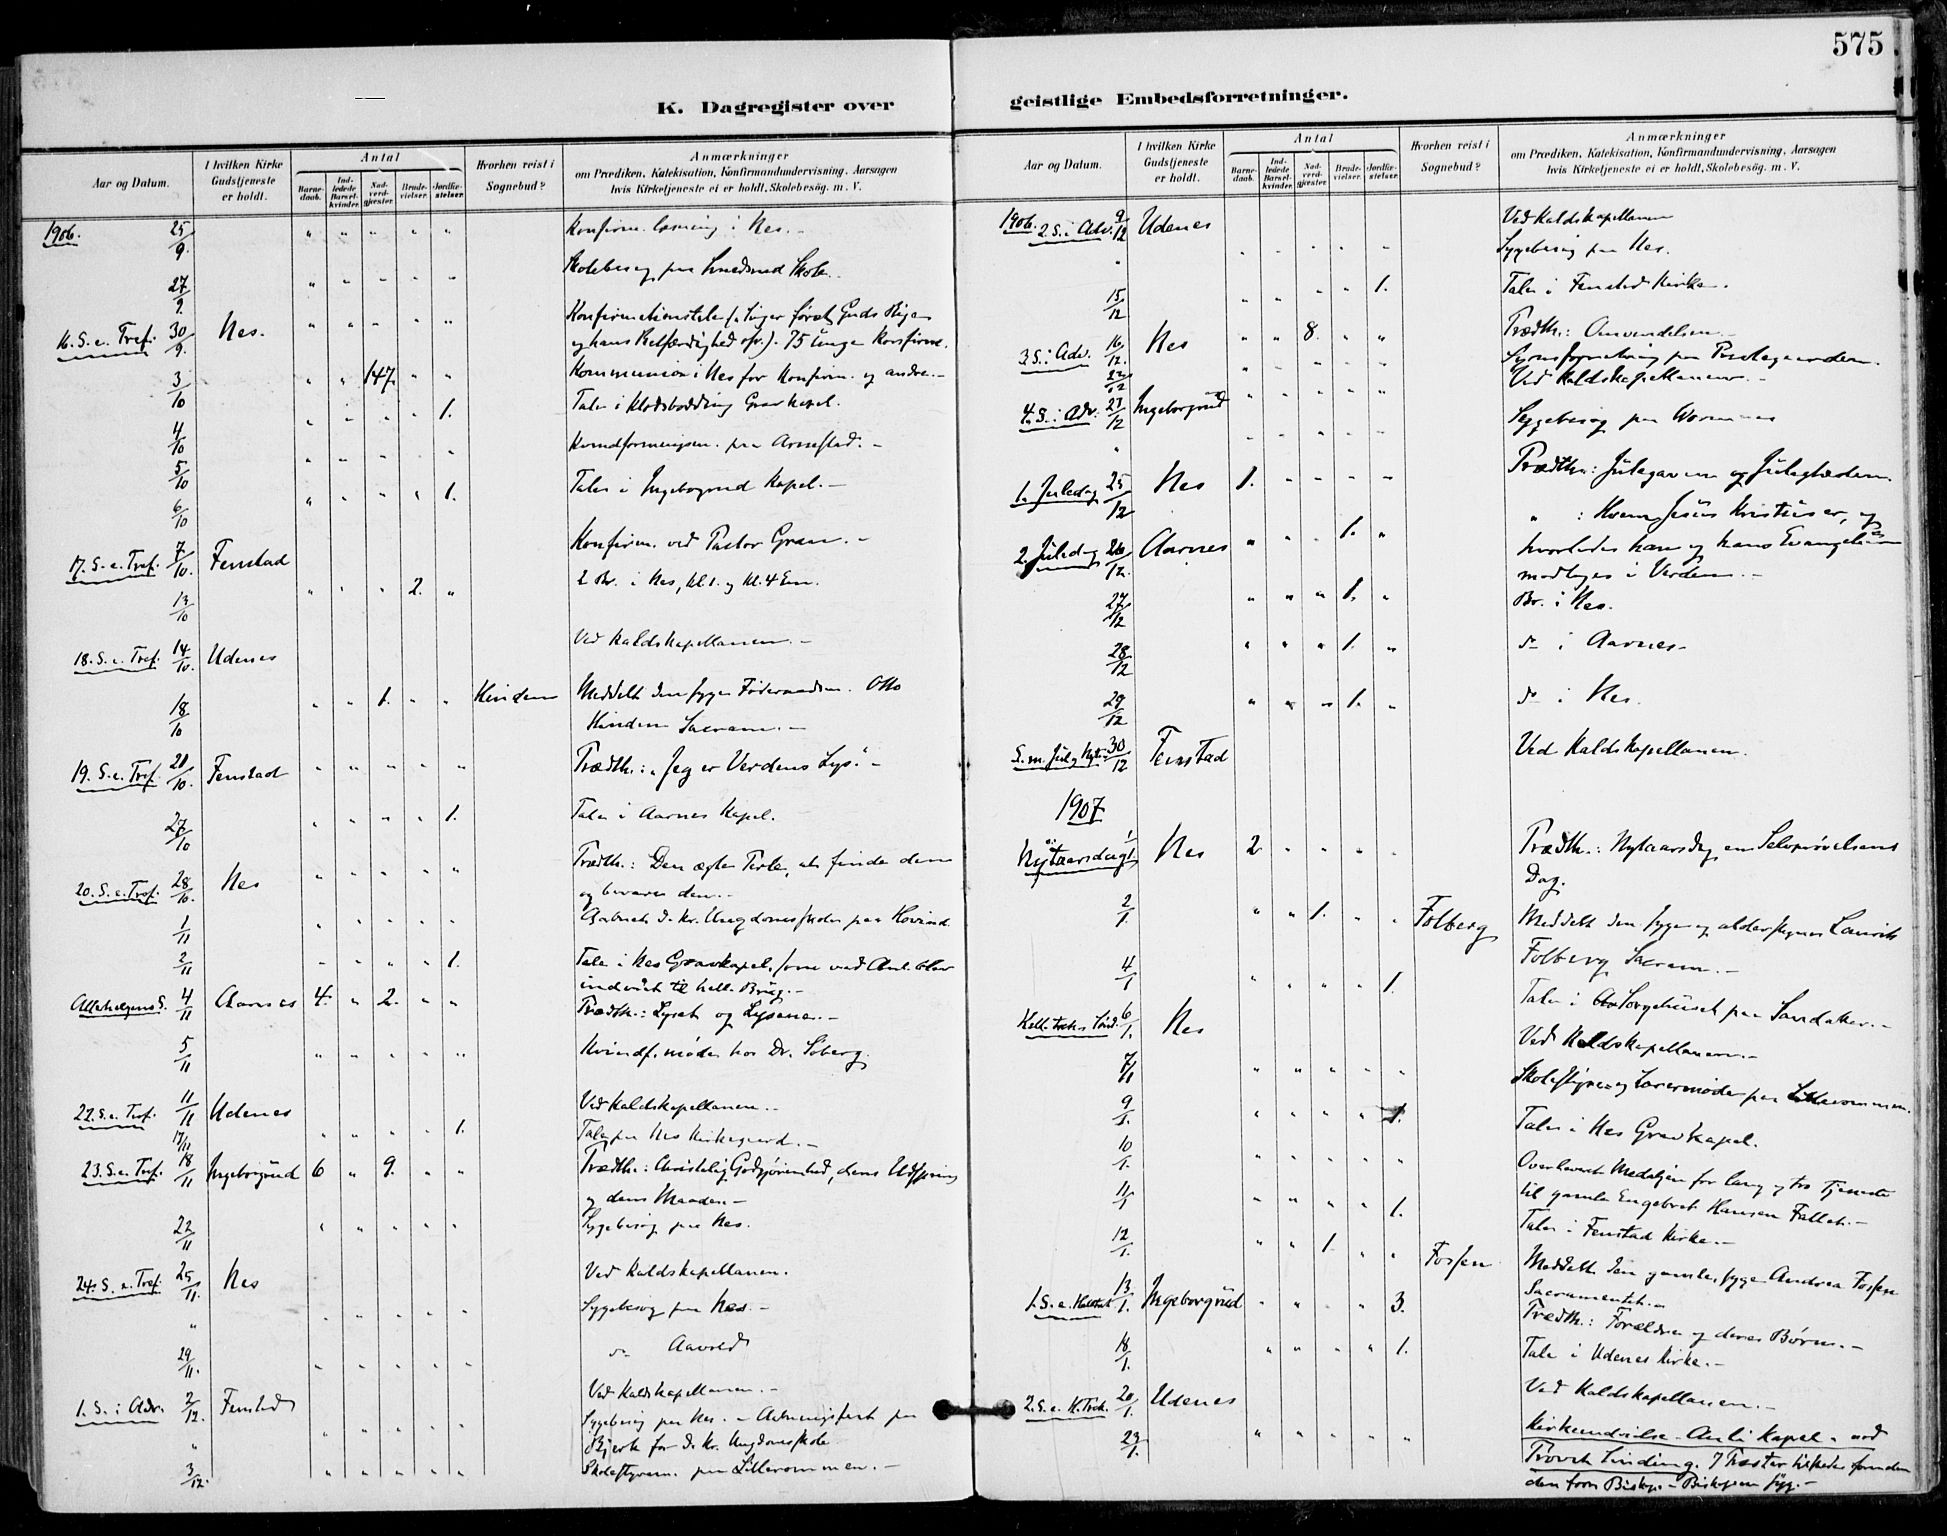 575
K. Dagregister over
geistlige Embedsforretninger.
Aar og Datum.
I hvilken Kirke Gudstjeneste er holdt.
Antal
Barnedaab.
Indledede Barselkvinder.
Nadverdgjæster.
Brudevielser.
Jordfæstelser.
Hvorhen reist i Sognebud?
Anmærkninger
om Prædiken, Katekisation, Konfirmandundervisning, Aarsagen
hvis Kirketjeneste ei er holdt, Skolebesög. m. V.
1906. 25/9. " " " " " Konfirm. læsning i Nes. -
27/9. " " " " " Skolebesøg paa Skole.
16. S. e. Tref. 30/9. Nes. " " " " " Konfirmationstale (: Søger først Guds Rige
og hans Retfærdighed osv.). 75 unge konfirm.
3/10 " " 147. " " Kommunion i Nes for Konfirm. og andre. -
4/10 " " " " 1. Tale i Klodsbodding Gravkapel.
5/10 " " " " " paa Arnestad. -
6/10 " " " " 1. Tale i Ingeborgrud Kapel. -
17. S. e. Tref. 7/10. Fenstad Konfirm. ved Pastor Gran. -
13/10 " " " 2. " 2 Br. i Nes, kl. 1. og kl. 4 Em.
18. S. e. Tref. 14/10. Udenes Ved Kaldskapellanen. -
18/10 " " 1. " " Hinden Meddelt den syge Føderaadsm. Otto
Hinden Sacram. -
19. S. e. Tref. 21/10. Fenstad " " " " " Prædth.: "Jeg er Verdens Lys". -
27/10 " " " " 1. Tale i Aarnes Kapel.
20. S. e. Tref. 28/10. Nes " " " " " Prædth.: Den ægte Perle, at finde den
og bevare den. -
1/11 " " " " " d. kr. Ungdomsskole paa Hovind.
2/11 " " " " 1. Tale i Nes Gravkapel, som ved Anl. blev
indviet til hell. Brug. -
Allehelgens S. 4/11 Aarnes 4. " 2. " " Prædth.: Lyset og Lysene. -
5/11 " " " " " Kvindf. møde hos Dr. Soberg.
22. S. e. Tref. 11/11 Udenes Ved Kaldskapellanen. -
17/11 " " " " 1. Tale paa Nes Kirkegaard. -
23. S. e. Tref. 18/11 Ingeborgrud 6 " 9. " " Prædth.: Christelig Godgjørenhed, dens Udspring
og dens Maade. -
22/11 " " " " " Sygebesøg paa Nes.
24. S. e. Tref. 25/11. Nes Ved Kaldskapellanen.
" " " " " " Sygebesøg paa Nes -
29/11. " " " " " do Aavold
1. S. i Adv. 2/12. Fenstad Ved Kaldskapellanen. -
" " " " " " Sygebesøg paa Nes. - paa
Bjerke for d. kr. Ungdomsskole
3/12. " " " " " Skolestyrem. paa Lillerommen. -
1906. 2. S. i Adv. 9/12 Udenes Ved Kaldskapellanen
" " " " " " Sygebesøg paa Nes.
15/12 " " " " 1. Tale i Fenstad Kirke.
3. S. i Adv. 16/12. Nes " " 8. " " Prædth.: Omvendelsen. -
22/12 " " " " " paa Prestegaarden.
4. S. i Adv. 23/12 Ingeborgrud Ved Kaldskapellanen. -
" " " " " " Sygebesøg paa Wormnes
1. Juledag 25/12 Nes 1. " " " " Prædth.: Julegaven og Juleglæden.
2. Juledag 26/12. Aarnes " " " 1. " " : Hvem Jesus Kristus er, og
hvorledes han og hans Evangelium
modtages i Verden. -
27/12 " " " 1. " Br. i Nes.
28/12 " " " 1. " do i Aarnes -
29/12 " " " 1. " do i Nes.
S. m. Jul og Nytaar 30/12 Fenstad Ved Kaldskapellanen.
1907
Nytaarsdag 1/1 Nes 2 " " " " Prædth.: Nytaarsdag en Selvprøvelsens
Dag.
2/1. " " 1. " " Folberg Meddelt den syge og alderstegne Laurits
Folberg Sacram. -
4/1 " " " " 1. Tale i Sørgehuset paa Sandaker. -
Hell. trek. Sønd. 6/1. Nes Ved Kaldskapellanen. -
7/11 " " " " " Skolestyre- og Lærermøde paa Lillerommen.
9/1. " " " " 1. Tale i Nes Gravkapel.
10/1. " " " " " Overleveret Medaljen for lang og tro Tjeneste
til gamle Engebret Hansen Fallet. -
11/1 " " " " 1. Tale i Fenstad Kirke. -
12/1. " " 1. " " Fossen Meddelt den gamle, syge Andrea Fossen
Sacramentet. -
1. S. e. Helltrek 13/1. Ingeborgrud " " " " 3. Prædth.: Forældre og deres Børn. -
18/1. " " " " 1. Tale i Udenes Kirke. -
2. S. e. H. Trek. 20/1. Udenes Ved Kaldskapellanen. -
23/1. " " " " " Kirkeindvielse - Auli Kapel - ved
Provst Linding. 7 Prester tilstede foruden
den forr. Biskop. - Biskopen syg. -